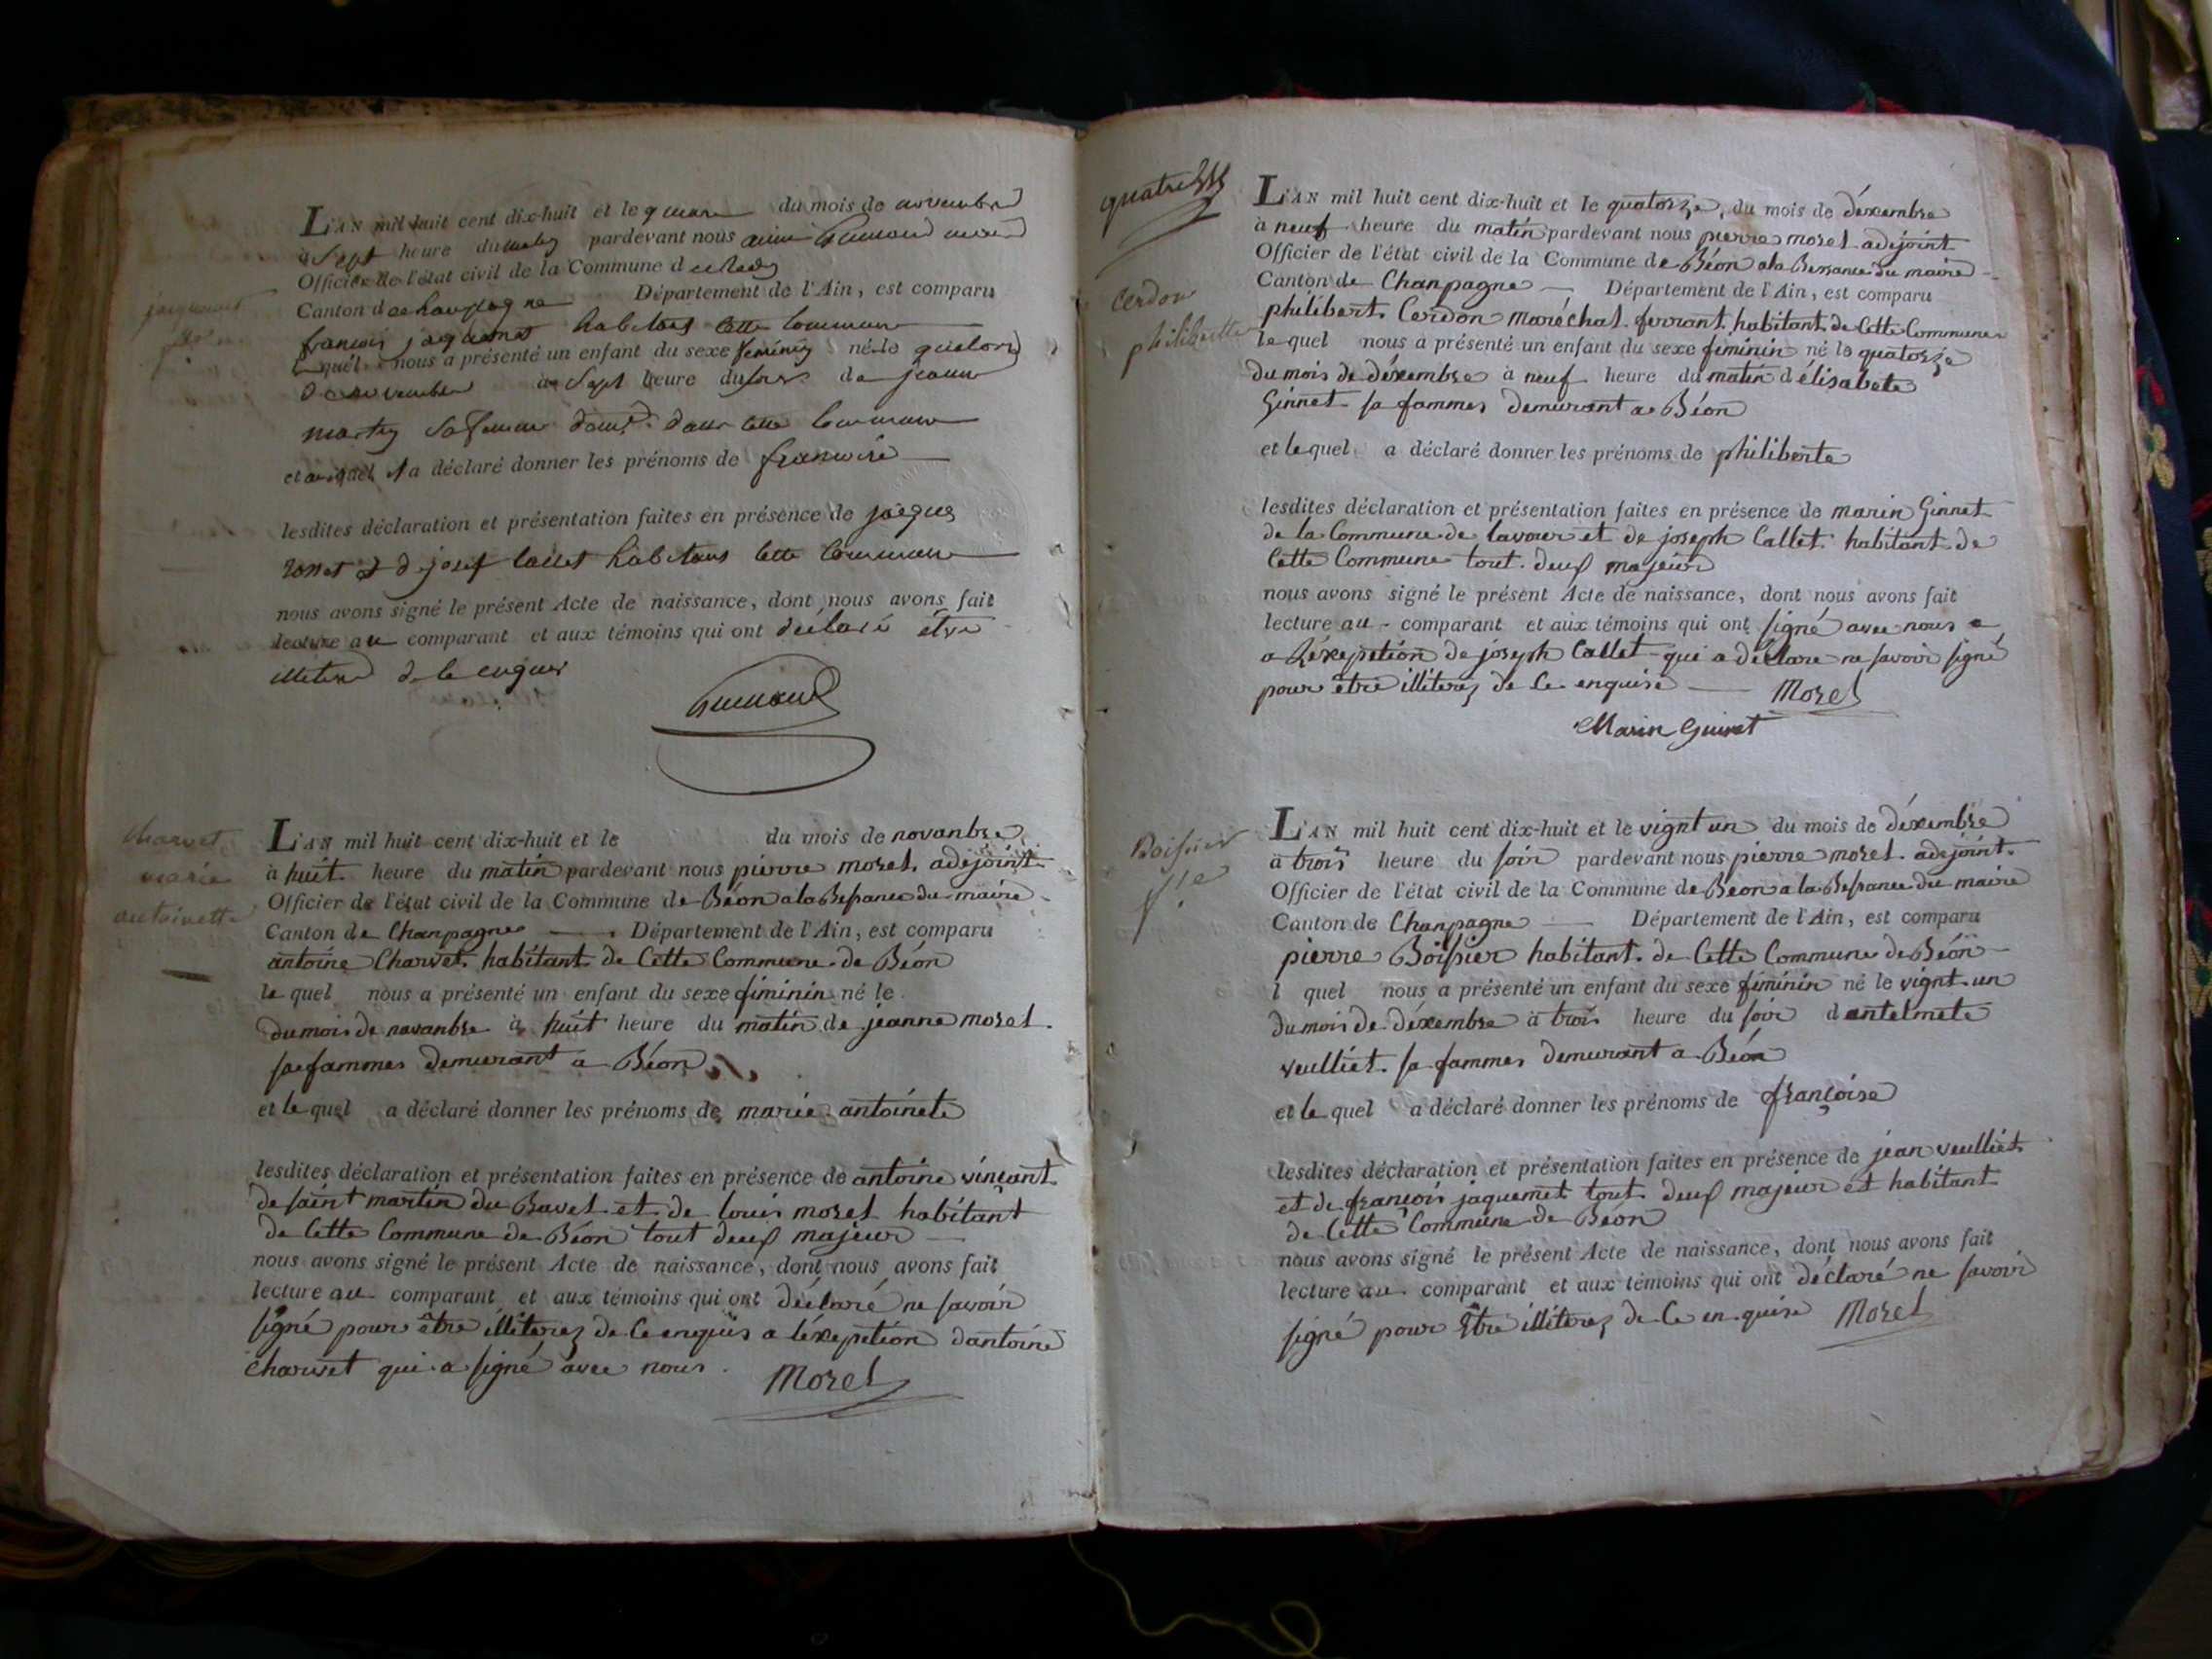 L'AN mil huit cent dix-huit et le du mois de novembre
à Sept heure du matin pardevant nous
Officier de l'état civil de la Commune de
Canton de Département de l'Ain, est comparu
françois jaquemet habitant cette Commune
lequel nous a présenté un enfant du sexe féminin né le
de novembre à Sept heure du de jeanne
Sa femme dans cette Commune
et auquel il a déclaré donner les prénoms de françoise
lesdites déclaration et présentation faites en présence de jacque
et de josef Callet habitans cette Commune
nous avons signé le présent Acte de naissance, dont nous avons fait
lecture au comparant et aux témoins qui ont déclaré être
de ce enquis
charvet
marie
antoinette
L'AN mil huit cent dix-huit et le du mois de novanbre
à huit heure du matin pardevant nous pierre morel adejoint
Officier de l'état civil de la Commune de Béon a la Bessance du maire
Canton de Chanpagne Département de l'Ain, est comparu
antoine Charvet habitant de Cette Commune de Béon
le quel nous a présenté un enfant du sexe féminin né le
du mois de novanbre à huit heure du matin de jeanne morel
sa fammes demurant a Béon
et le quel a déclaré donner les prénoms de marie antoinete
lesdites déclaration et présentation faites en présence de antoine vincant
de saint martin du Bavel et de louis morel habitant
de Cette Commune de Béon tout deux majeur
nous avons signé le présent Acte de naissance, dont nous avons fait
lecture au comparant et aux témoins qui ont déclaré ne savoir
signé pour être illiterez de Ce enquis a l'éxepetion dantoine
Charvet qui a signé avec nous. Morel
Cerdon
philiberte
L'AN mil huit cent dix-huit et le quatorze, du mois de déxembre
à neuf heure du matin pardevant nous pierre morel adejoint
Officier de l'état civil de la Commune de Béon a la Bessance du maire
Canton de Chanpagne Département de l'Ain, est comparu
philibert Cerdon maréchal ferrant habitant de Cette Commune
le quel nous a présenté un enfant du sexe féminin né le quatorze
du mois de déxembre à neuf heure du matin d élisabete
Ginnet sa fammes demurant a Béon
et le quel a déclaré donner les prénoms de philiberte
lesdites déclaration et présentation faites en présence de marin Ginnet
de la Commune de lavour et de joseph Callet habitant de
Cette Commune tout deux majeur
nous avons signé le présent Acte de naissance, dont nous avons fait
lecture au comparant et aux témoins qui ont signé avec nous
a l'éxepetion de joseph Callet qui a déclare ne savoir signé
pour être illiterez de Ce enquise Morel
Marin Guinet
Boissier
f.se
L'AN mil huit cent dix-huit et le vignt un du mois de déxembre
à trois heure du soir pardevant nous pierre morel adejoint
Officier de l'état civil de la Commune de Béon a la Bessance du maire
Canton de Chanpagne Département de l'Ain, est comparu
pierre Boissier habitant de Cette Commune de Béon
l quel nous a présenté un enfant du sexe féminin né le vignt un
du mois de déxembre à trois heure du soir d antelmete
veulliet sa fammes demurant a Béon
et le quel a déclaré donner les prénoms de françoise
lesdites déclaration et présentation faites en présence de jean veulliet
et de françois jaquemet tout deux majeur et habitant
de Cette Commune de Béon
nous avons signé le présent Acte de naissance, dont nous avons fait
lecture au comparant et aux témoins qui ont déclaré ne savoir
signé pour être illiterez de Ce en quise Morel